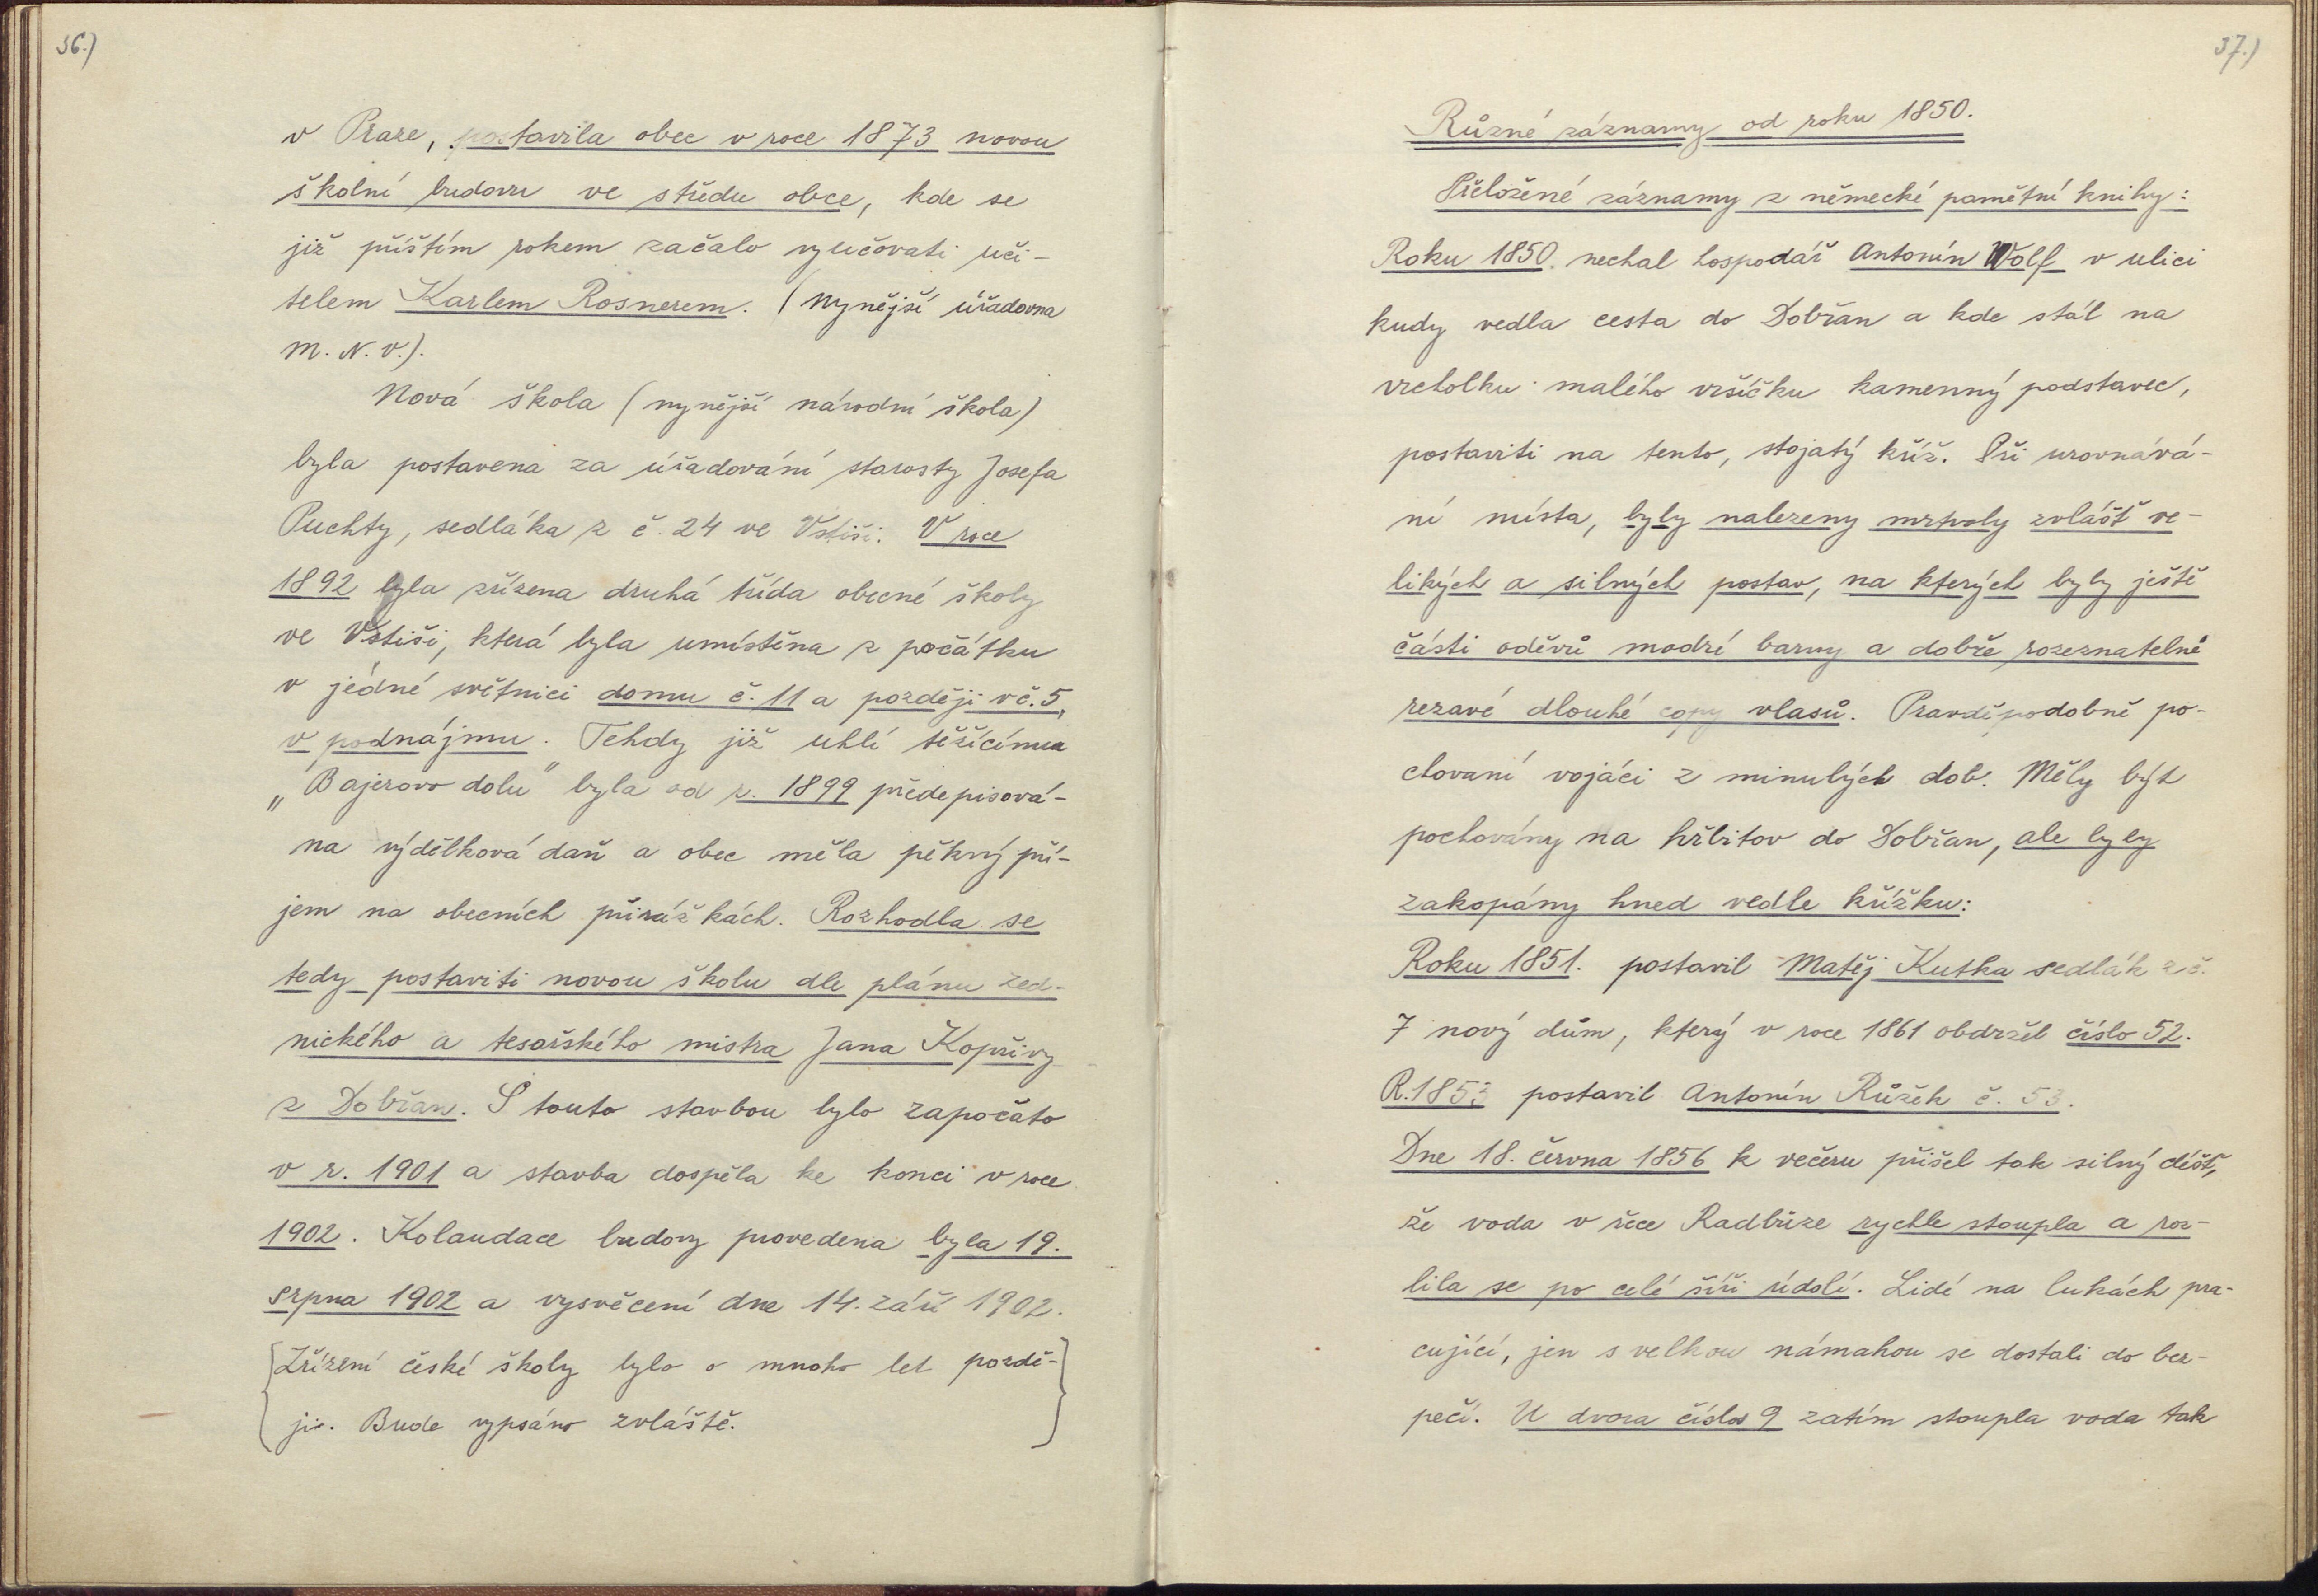 36.)
v Praze, postavila obec v roce 1873 novou
školní budovu ve středu obce, kde se
již příštím rokem začalo vyučovati uči-
telem Karlem Rosnerem. (Nynější úřadovna
M. N. V.).
Nová škola (nynější národní škola)
byla postavena za úřadování starosty Josefa
Puchty, sedláka z č. 24 ve Vstiši. V roce
1892 byla zřízena druhá třída obecné školy
ve Vstiši, která byla umístěna z počátku
v jedné světnici domu č. 11 a později v č. 5,
v podnájmu. Tehdy již uhlí těžícímu
„Bajerovo dolu" byla od r. 1899 předepisová-
na výdělková daň a obec měla pěkný pří-
jem na obecních přirážkách. Rozhodla se
tedy postaviti novou školu dle plánu zed-
nického a tesařského mistra Jana Kopřivy
z Dobřan. S touto stavbou bylo započato
v r. 1901 a stavba dospěla ke konci v roce
1902. Kolaudace budovy provedena byla 19.
srpna 1902 a vysvěcení dne 14. září 1902.
Zřízení české školy bylo o mnoho let pozdě-
ji. Bude vypsáno zvláště.
37.)
Různé záznamy od roku 1850.
Přeložené záznamy z německé pamětní knihy:
Roku 1850. nechal hospodář Antonín Wolf v ulici
kudy vedla cesta do Dobřan a kde stál na
vrcholku malého vršíčku kamenný podstavec,
postaviti na tento, stojatý kříž. Při urovnává-
ní místa, byly nalezeny mrtvoly zvlášť ve-
likých a silných postav, na kterých byly ještě
části oděvů modré barvy a dobře rozeznatelné
rezavé dlouhé copy vlasů. Pravděpodobně po-
chovaní vojáci z minulých dob. Měly být
pochovány na hřbitov do Dobřan, ale byly
zakopány hned vedle křížku:
Roku 1851. postavil Matěj Kutka sedlák z č.
7 nový dům, který v roce 1861 obdržel číslo 52.
R. 1853 postavil Antonín Růžek č. 53.
Dne 18. června 1856 k večeru přišel tak silný déšť,
že voda v řece Radbůze rychle stoupla a roz-
lila se po celé šíři údolí. Lidé na lukách pra-
cující, jen s velkou námahou se dostali do bez-
pečí. U dvora číslo 9 zatím stoupla voda tak